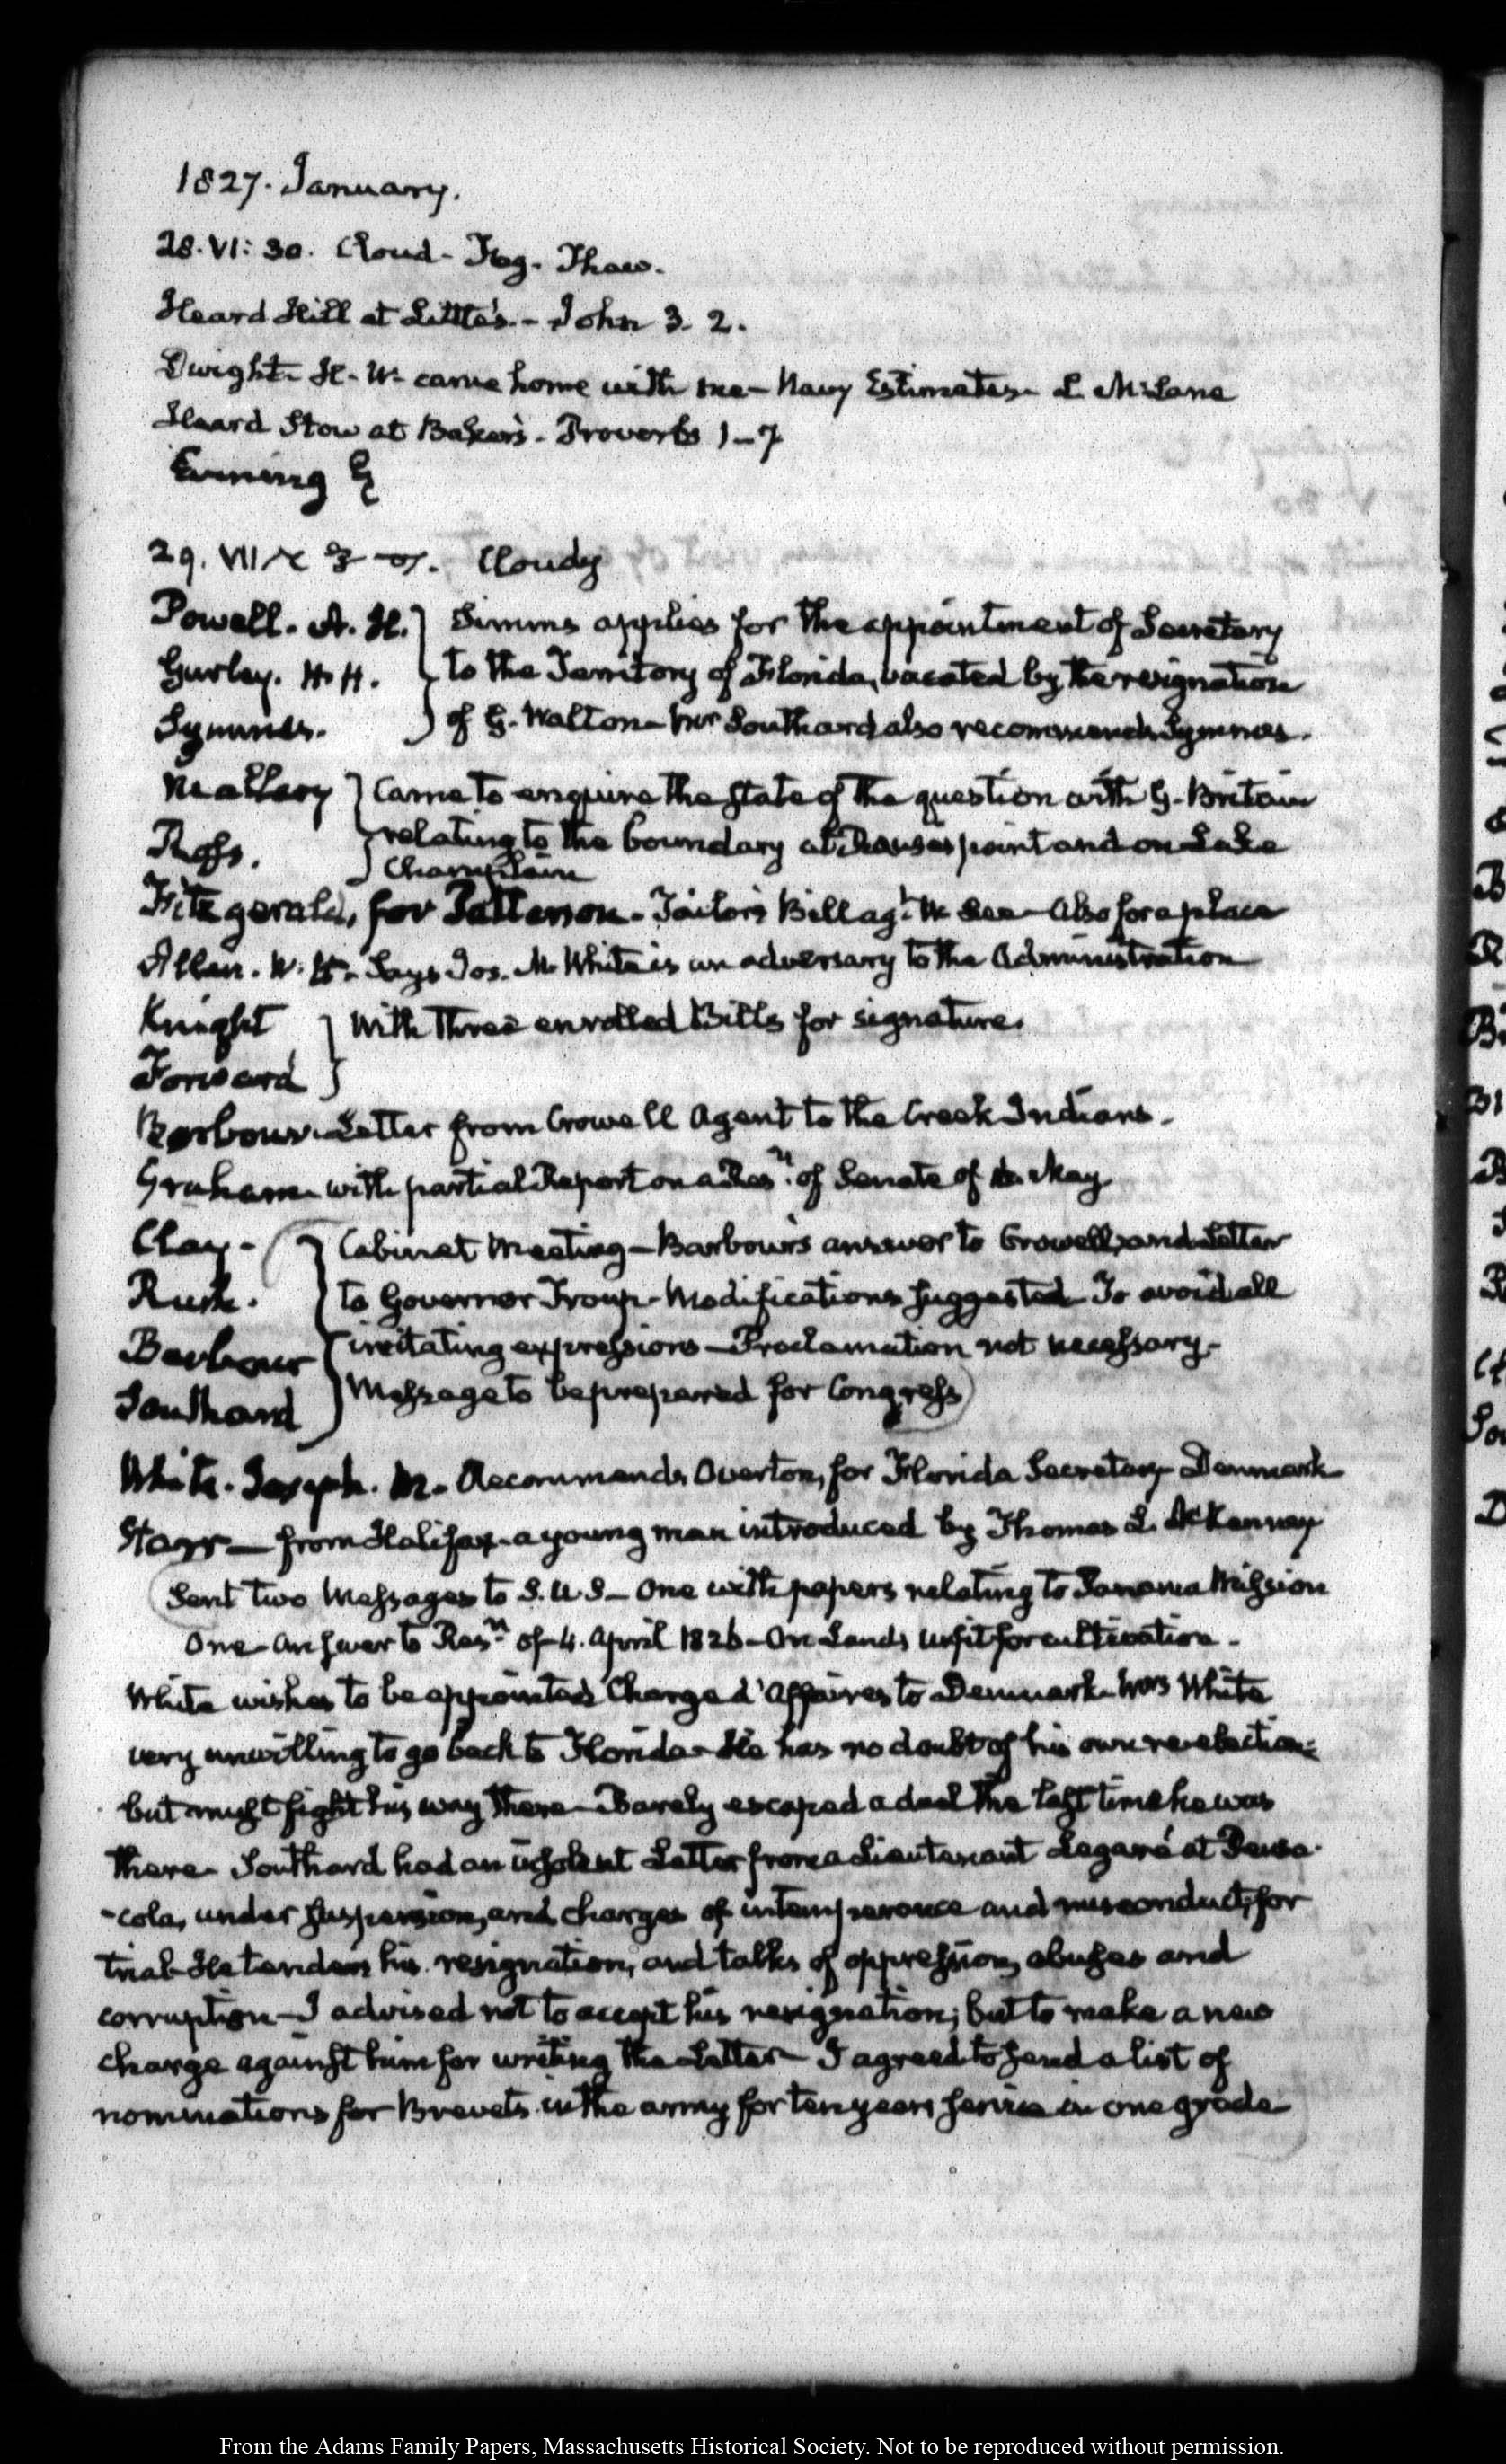 1827. January.
28. VI: 30. Cloud - Fog - Thaw.
Heard Hill at Little's. - John 3. 2.
Dwight. H. W. came home with me - Navy Estimates - L. McLane
Heard Stow at Baker's. Proverbs 1-7
Evening
29. VII Cloudy
Powell. A. H. } Simms applies for the appointment of Secretary
Gurley. H. H. } to the Territory of Florida, vacated by the resignation
Symmes. } of G. Walton - Mr Southard also recommends Symmes.
Mallary } Came to enquire the state of the question with G. Britain
Ross. } relating to the boundary at Rouses point and on Lake
Champlain
Fitzgerald, for Patterson. Tailor's Bill agt. W. Lee - Also for a place
Allen. W. Says Jos. M. White is an adversary to the Administration
Knight } With three enrolled Bills for signature.
Forward }
Barbour. Letter from Crowell Agent to the Creek Indians.
Graham - with partial Report on a Resn. of Senate of May
Clay - } Cabinet Meeting - Barbour's answer to Crowell, and Letter
Rush. } to Governor Troup - Modifications suggested To avoid all
Barbour } irritating expressions - Proclamation not necessary -
Southard } Message to be prepared for Congress
White. Joseph. M. Recommends Overton, for Florida Secretary - Denmark
Starr - from Halifax - a young man introduced by Thomas L. McKenney
Sent two Messages to S.U.S - One with papers relating to Panama Mission
One - Answer to Resn of 4. April 1826 - On Lands unfit for cultivation -
White wishes to be appointed Chargé d'Affaires to Denmark - Mrs White
very unwilling to go back to Florida - He has no doubt of his own re-election:
but must fight his way there - Barely escaped a duel the last time he was
there - Southard had an insolent Letter from a Lieutenant Legaré at Pensa-
-cola, under suspension, and charges of intemperance and misconduct, for
trial - He tenders his resignation, and talks of oppression, abuses and
corruption - I advised not to accept his resignation; but to make a new
charge against him for writing the Letter - I agreed to send a list of
nominations for Brevets in the army for ten years service in one grade
From the Adams Family Papers, Massachusetts Historical Society. Not to be reproduced without permission.